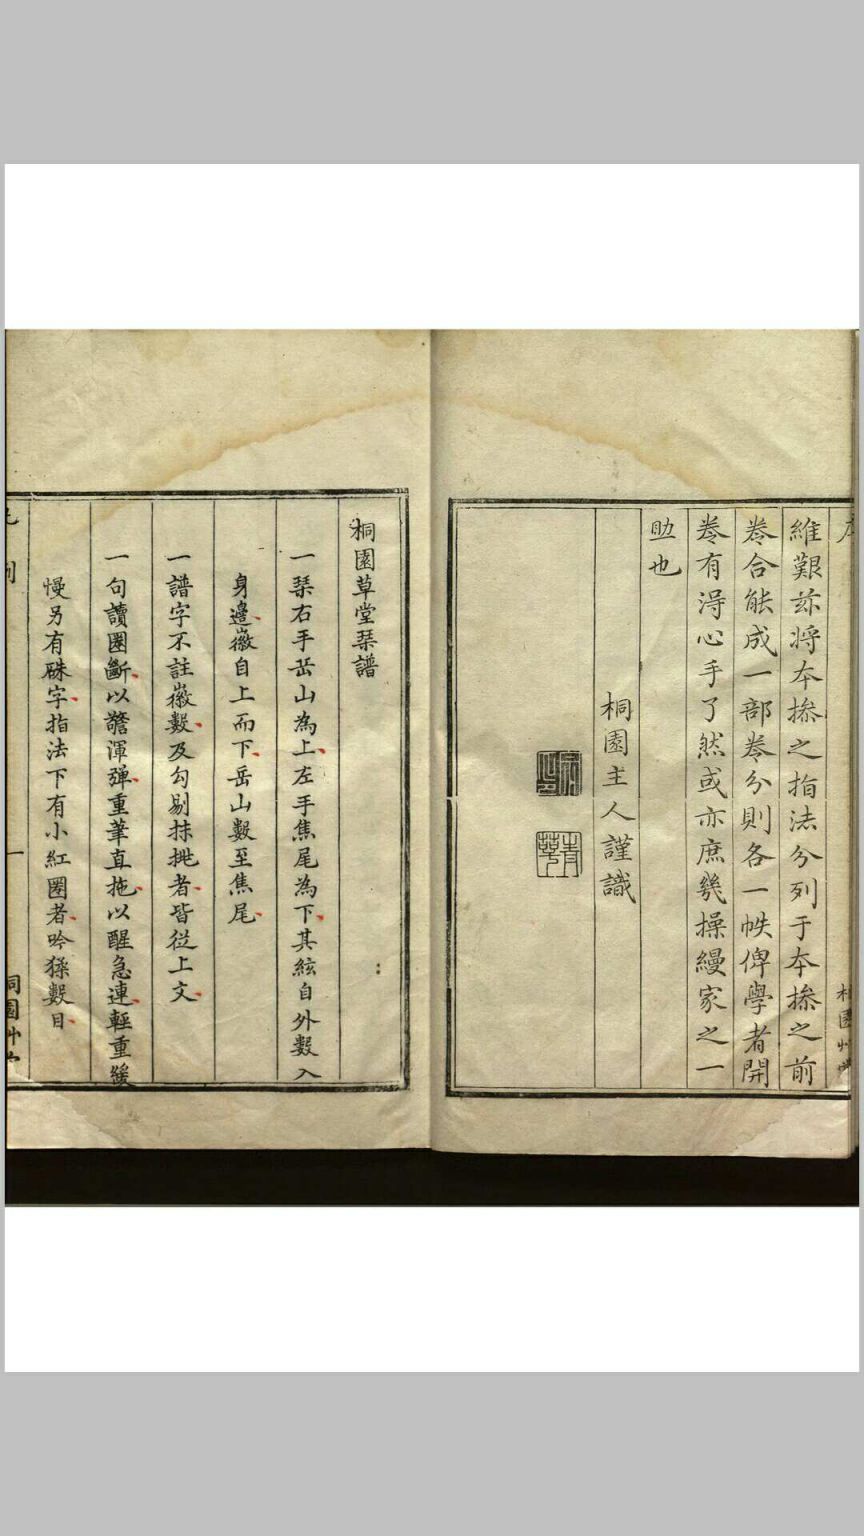 維艱茲将本摻之指法分列于本摻之前
卷合能成一部卷分則各一帙俾學者開
卷有淂心手了然或亦庶幾操縵家之一
助也
桐園主人謹識
桐園草堂琹譜
一琹右手岳山為上左手焦尾為下其絃自外數入
身邉徽自上而下岳山數至焦尾
一譜字不註徽數及勾剔抹挑者皆従上文
一句讀圏斷以聽渾弹重筆直拖以醒急連輕重緩
慢另有硃字指法下有小紅圏者吟猱數目
例
一
桐園艸堂